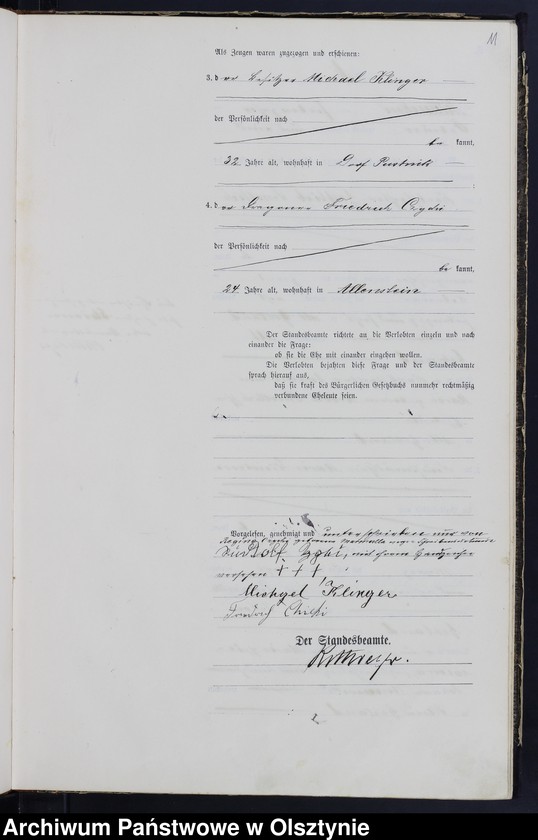 11
Als Zeugen waren zugezogen und erschienen:
3. der Besitzer Michael Klinger
der Persönlichkeit nach
be kannt,
32 Jahre alt, wohnhaft in Dorf
4. der Dragoner Friedrich
der Persönlichkeit nach
be kannt,
24 Jahre alt, wohnhaft in Allenstein
Der Standesbeamte richtete an die Verlobten einzeln und nach
einander die Frage:
ob sie die Ehe mit einander eingehen wollen.
Die Verlobten bejahten diese Frage und der Standesbeamte
sprach hierauf aus,
daß sie kraft des Bürgerlichen Gesetzbuchs nunmehr rechtmäßig
verbundene Eheleute seien.
Vorgelesen, genehmigt und unterschrieben und von
geborene wegen
mit ihrem Handzeichen
versehen + + +
Klinger
Der Standesbeamte.
Archiwum Państwowe w Olsztynie